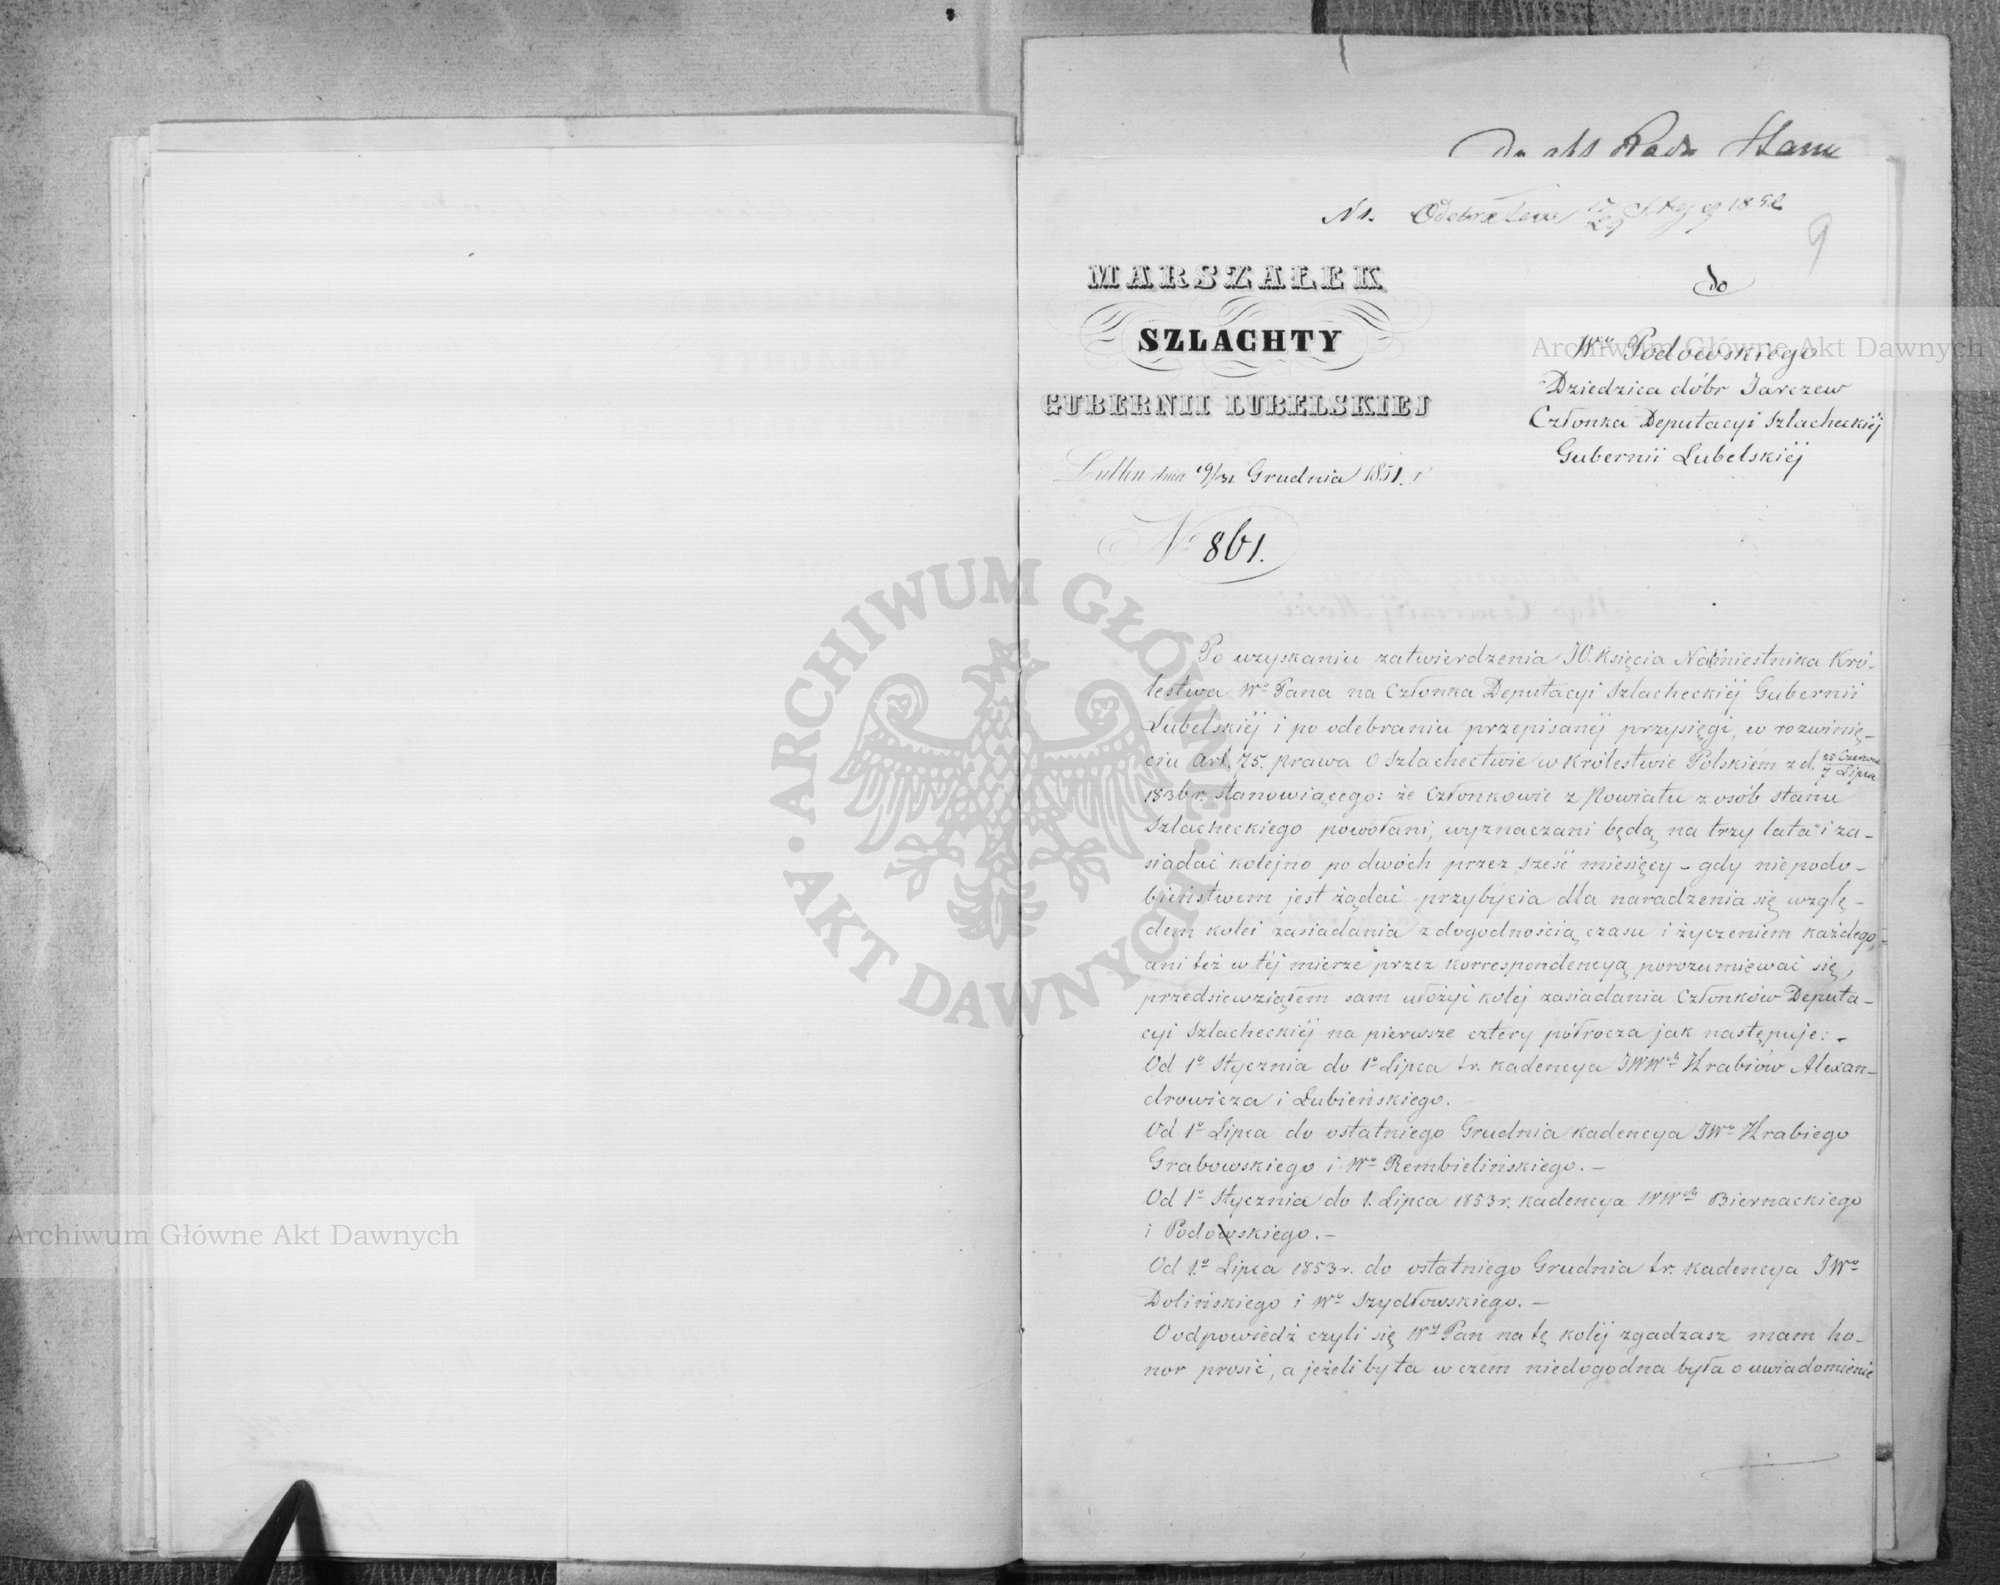 Do akt Rady Stanu
N 1. Odebrałem 17/29 Stycz 1852
9
MARSZAŁEK
SZLACHTY
GUBERNII LUBELSKIEJ
Lublin dnia 19/31 Grudnia 1851. r
№ 861.
do
Wo Podowskiego
Dziedzica dóbr Jarczew
Członka Deputacyi Szlacheckiéj
Gubernii Lubelskiéj
Po uzyskaniu zatwierdzenia JO. Księcia Namiestnika Kró-
lestwa Wo Pana na Członka Deputacyi Szlacheckiéj Gubernii
Lubelskiéj i po odebraniu przepisanéj przysięgi, w rozwinię-
ciu Art. 75. prawa o Szlachectwie w Królestwie Polskiém z d. 25 Czerwca/7 Lipca
1836 r. stanowiącego: że Członkowie z Powiatu z osób stanu
Szlacheckiego powołani, wyznaczani będą na trzy lata i za-
siadać kolejno po dwóch przez sześć miesięcy – gdy niepodo-
bieństwem jest żądać przybycia dla naradzenia się wzglę-
dem kolei zasiadania z dogodnością czasu i życzeniem każdego,
ani też w téj mierze przez korrespondencyą porozumiewać się,
przedsiewziąłem sam ułożyć koléj zasiadania Członków Deputa-
cyi Szlacheckiéj na pierwsze cztery półrocza jak następuje: –
Od 1o Stycznia do 1o Lipca t. r. kadencya JWWch Hrabiów Alexan-
drowicza i Łubieńskiego. –
Od 1o Lipca do ostatniego Grudnia kadencya JWo Hrabiego
Grabowskiego i Wo Rembielińskiego. –
Od 1o Stycznia do 1. Lipca 1853 r. kadencya WWch Biernackiego
i Podowskiego. –
Od 1.o Lipca 1853 r. do ostatniego Grudnia t. r. kadencya JWo
Dolińskiego i Wo Szydłowskiego. –
O odpowiedź czyli się Wy Pan na tę koléj zgadzasz mam ho-
nor prosić, a jeżeliby ta w czém niedogodna była o uwiadomienie
ARCHIWUM GŁÓWNE AKT DAWNYCH
Archiwum Główne Akt Dawnych
Archiwum Główne Akt Dawnych